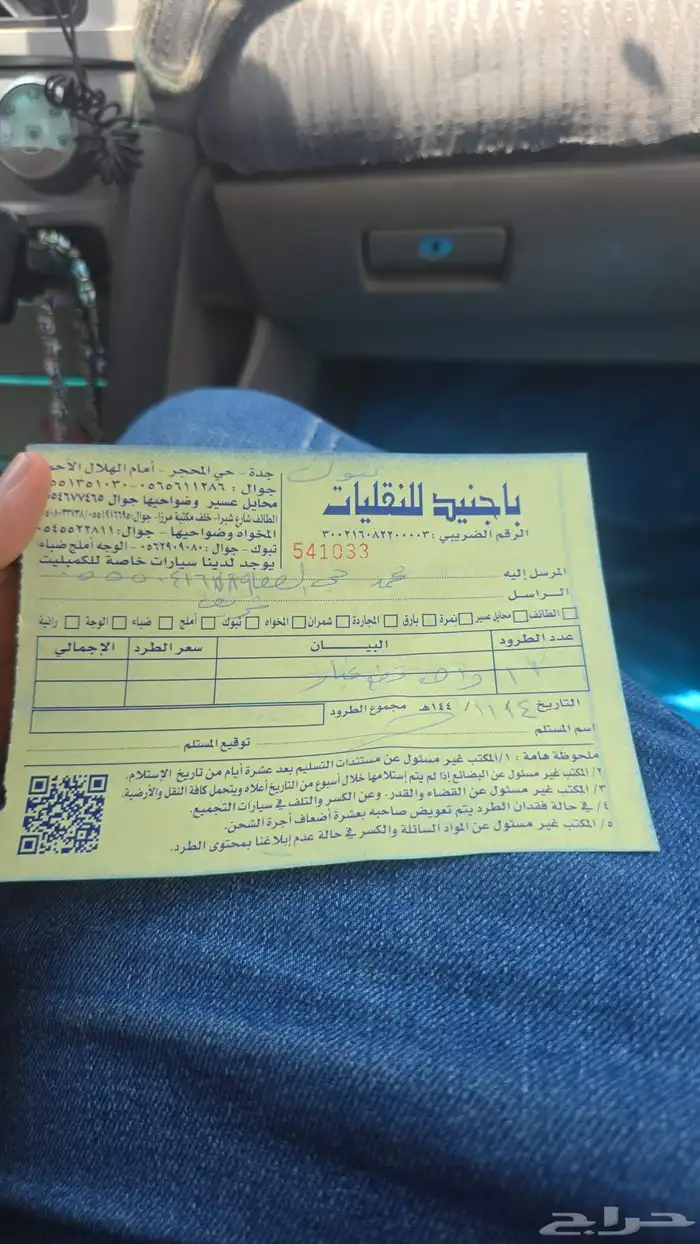 باجنيد للنقليات
الرقم الضريبي : ٣٠٠٢١٦٠٨٢٢٠٠٠٠٣
541033
جدة - حي المحجر - أمام الهلال الأحمر
جوال : ٠٥٦٥٦١١٢٨٦
محايل عسير وضواحيها جوال
الطائف شارع شبرا - خلف مكتبة مرزا - جوال:
المخواه وضواحيها - جوال: ٠٥٤٥٥٢٢٨١١
تبوك - جوال : ٠٥٦٢٩٠٩٠٨٠ - الوجه أملج ضباء
يوجد لدينا سيارات خاصة للكمبليت
تبوك
المرسل إليه محمد
الراسل
الطائف محايل عسير نمرة بارق المجاردة شمران المخواه تبوك أملج ضباء الوجة رانية
عدد الطرود البيان سعر الطرد الإجمالي
التاريخ ١٤٤هـ مجموع الطرود
اسم المستلم توقيع المستلم
ملحوظة هامة : ١/ المكتب غير مسئول عن مستندات التسليم بعد عشرة أيام من تاريخ الإستلام.
٢/ المكتب غير مسئول عن البضائع إذا لم يتم إستلامها خلال أسبوع من التاريخ أعلاه ويتحمل كافة النقل والأرضية.
٣/ المكتب غير مسئول عن القضاء والقدر. وعن الكسر والتلف في سيارات التجميع.
٤/ في حالة فقدان الطرد يتم تعويض صاحبه بعشرة أضعاف أجرة الشحن.
٥/ المكتب غير مسئول عن المواد السائلة والكسر في حالة عدم إبلاغنا بمحتوى الطرد.
حراج